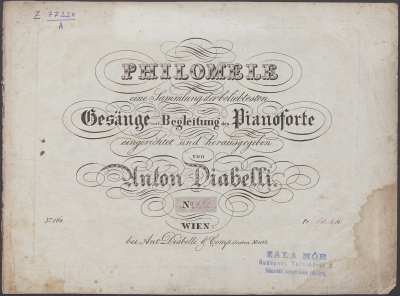 Z 77.224
A
PHILOMELE
eine Sammlung der beliebtesten
Gesänge mit Begleitung des Pianoforte
eingerichtet und herausgegeben
von
Anton Diabelli.
N
WIEN,
bei Ant. Diabelli & Comp.
Pr. C.M.
ZALA MÓR
Budapest,